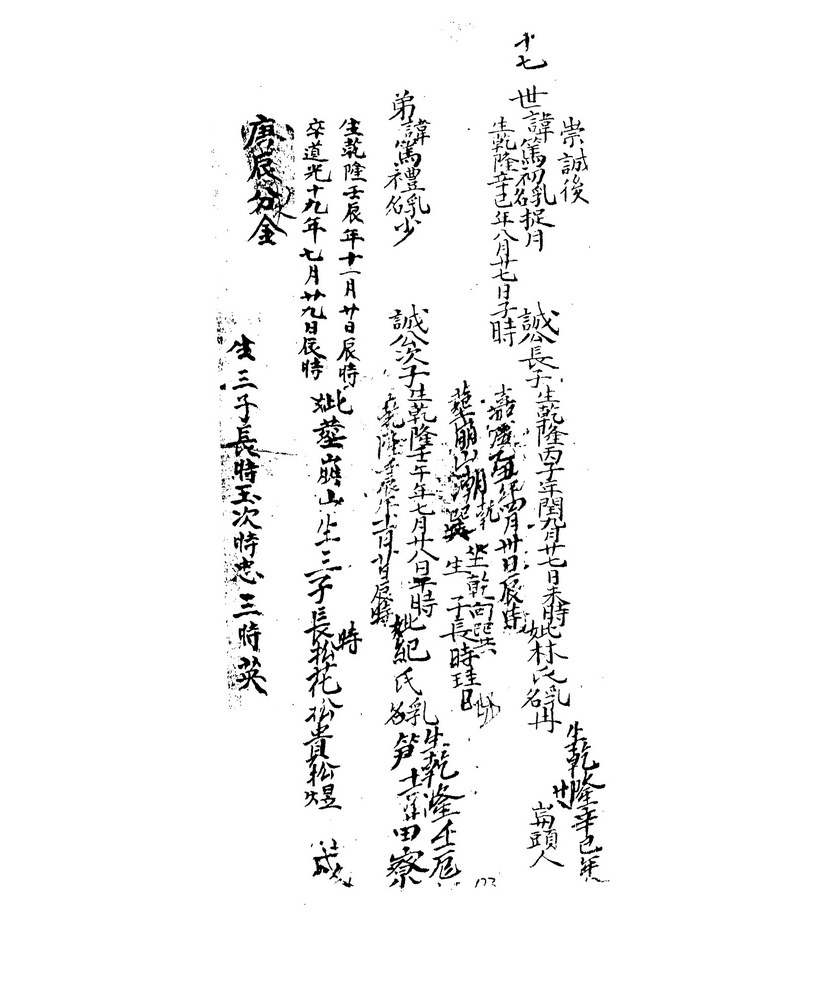 十七
崇誠後
世諱篤初乳名捉月
生乾隆辛巳年八月廿七日子時
誠公長子生乾隆丙子年閏九月廿七日未時妣林氏乳名冉
生乾隆辛巳年
崙頭人
嘉慶 年四月卅日辰時
葬崩山潮 坐乾向巽
生 子長時珪
弟諱篤禮乳名少
誠公次子生乾隆壬午年七月廿八日 時妣紀氏乳名笋
生乾隆壬辰
田寮
乾隆壬辰年十一月廿日辰時
生乾隆壬辰年十一月廿日辰時
卒道光十九年七月廿九日辰時
妣葬崩山生三子長松花松貴松煜
時
唐辰分金
生三子長時玉次時忠三時英